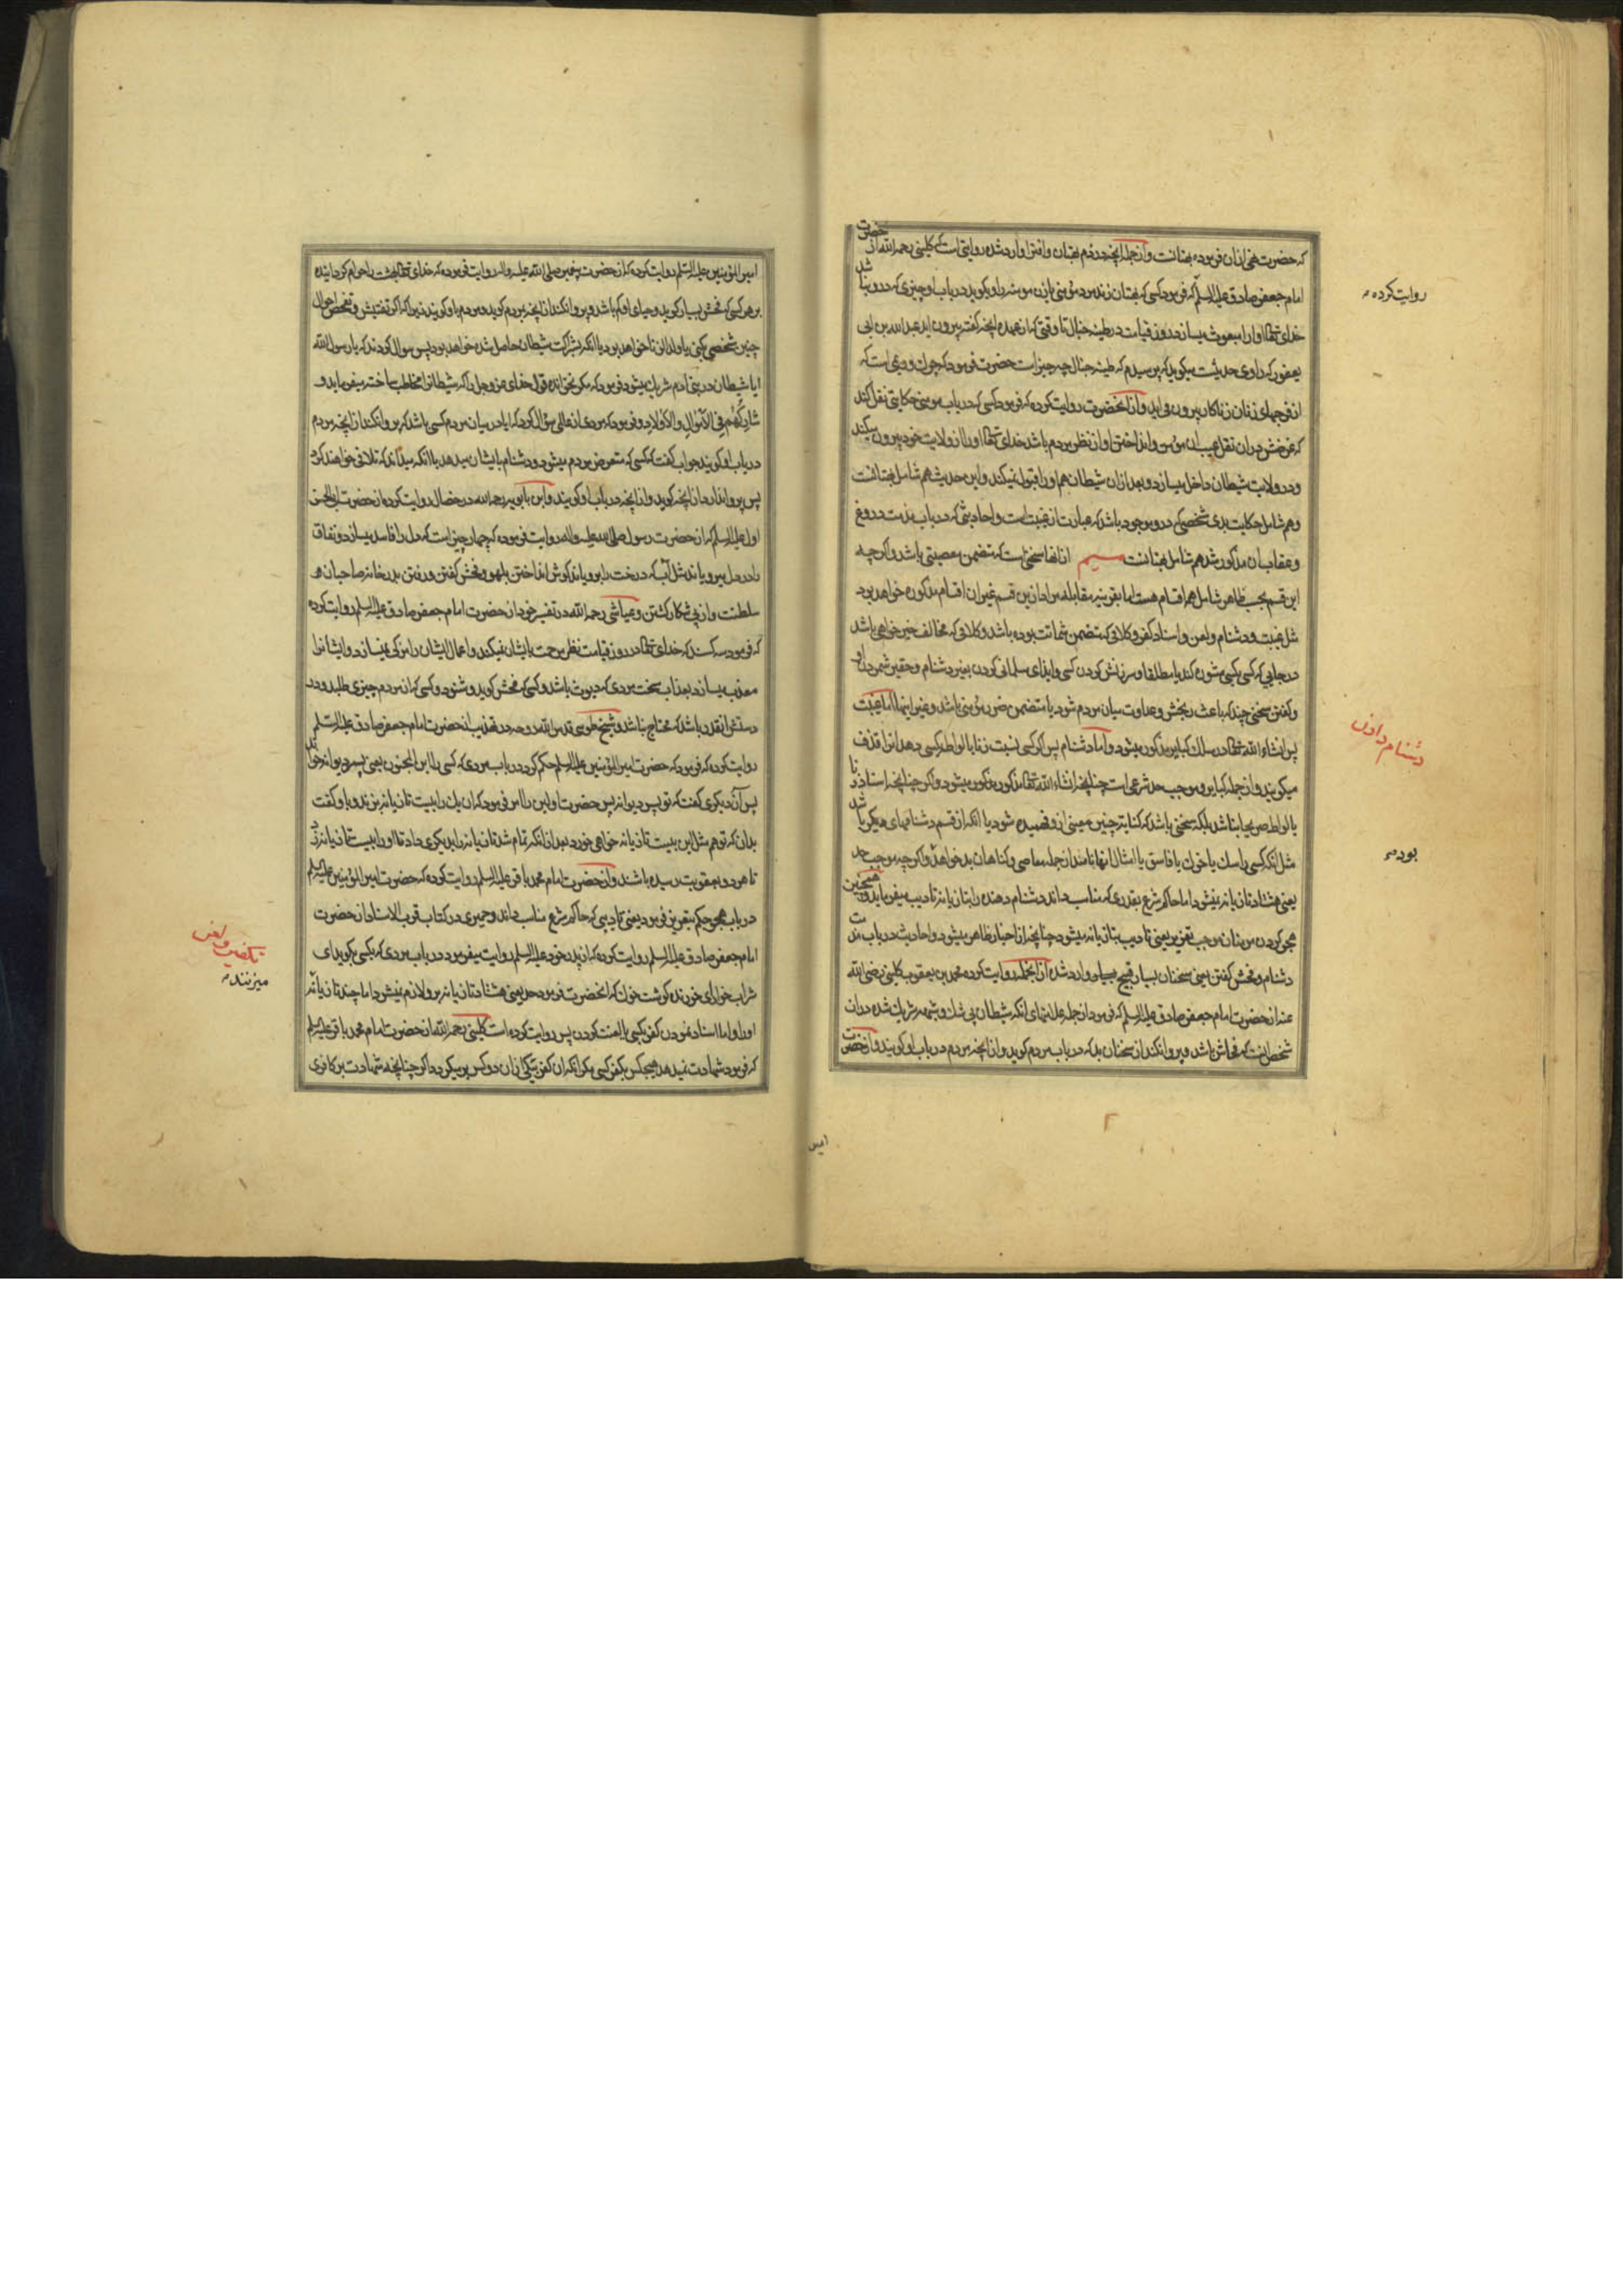 که حضرت نهی ازان فرموده بهتانست و از جمله آنچه در ذم بهتان و افترا وارد شده روایتی است که کلینی رحمه الله از حضرت
امام جعفر صادق علیه السلم که فرمود کسی که بهتان زند مرد مؤمنی یا زن مومنه را و بکوید در باب او چیزی که در و نباشد
خدای تعالی او را مبعوث میسازد در روز قیامت در طینه خبال تا وقتی که از عهده آنچه کفته بیرون اید عبد الله بن ابی
یعفور که راوی حدیثست میکوید که پرسیدم که طینه خبال چه چیز است حضرت فرمود که چرك و ریمی است که
از فرجهای زنان زناکار بیرون می اید و از آنحضرت روایت کرده که فرمود کسی که در باب مومنی حکایتی نقل کند
که غرضش دران نقل عیب ان مؤمن و انداختن او از نظر مردم باشد خدای تعالی او را از ولایت خود بیرون میکند
و در ولایت شیطان داخل میسازد و بعد ازان شیطان هم او را قبول نمیکند و این حدیث هم شامل بهتانست
و هم شامل حکایت بدی شخصی که در و موجود باشد که عبارت از غیبت است و احادیثی که در باب مذمت دروغ
و عقاب ان مذکور شد هم شامل بهتانست سیم از انها سخنی است که متضمن معصیتی باشد و اکرچه
این قسم بحسب ظاهر شامل همه اقسام هست اما بقرینه مقابله مراد ازین قسم غیر ان اقسام مذکوره خواهد بود
مثل غیبت و دشنام و لعن و اسناد کفر و کلامی که متضمن شماتت بوده باشد و کلامی که مخالف خیر خواهی باشد
در جایی که کسی بکسی مشورت کند یا مطلقا و سرزنش کردن کسی و ایذای مسلمانی کردن بغیر دشنام و حقیر شمردن او
و کفتن سخنی چند که باعث رنجش و عداوت میان مردم شود یا متضمن ضرر مؤمنی باشد و غیر اینها اما غیبت
پس انشاء الله تعالی در سلك کبایر مذکور میشود و اما دشنام پس اکر کسی نسبت زنا یا لواطه بکسی دهد انرا قذف
میکویند و از جمله کبایر و موجب حد شرعی است چنانچه انشاء الله تعالی مذکور میشود و اکر چنانچه اسناد زنا
یا لواط صریحا نباشد بلکه سخنی باشد که کنایة چنین معنی ازو فهمیده شود یا انکه از قسم دشنامهای دیکر باشد
مثل انکه کسی را سك یا خوك یا فاسق یا امثال انها نامند از جمله معاصی و کناهان بد خواهد بود و اکرچه موجب حد
یعنی هشتاد تازیانه نمیشود اما حاکم شرع بقدری که مناسب داند دشنام دهنده را بتازیانه تادیب میفرماید و همچنین
هجو کردن مومنان موجب تعزیر یعنی تادیب بتازیانه میشود چنانچه از اخبار ظاهر میشود و احادیث در باب مذمت
دشنام و فحش کفتن یعنی سخنان بسیار قبیح بسیار وارد شده از انجمله روایت کرده محمد بن یعقوب کلینی رضی الله
عنه از حضرت امام جعفر صادق علیه السلم که فرمود از جمله علامتهای انکه شیطان بی شك و شبهه شریك شده در ان
شخص اینست که فحاش باشد و پروا نکند از سخنان بد که در باب مردم کوید و از آنچه مردم در باب او کویند و از حضرت
روایت کرده
دشنام دادن
بود
امیر
امیر المؤمنین علیه السلم روایت کرده که از حضرت پیغمبر صلی الله علیه واله روایت فرموده که خدای تعالی بهشت را حرام کردانیده
بر هر کسی که فحش بسیار کوید و حیای او کم باشد و پروا نکند از آنچه بمردم کوید و مردم باو کویند زیرا که اکر تفتیش و تفحص احوال
چنین شخصی بکنی یا ولد الزنا خواهد بود یا انکه بشرکت شیطان حاصل شده خواهد بود پس سوال کردند که یا رسول الله
ایا شیطان در بنی ادم شریك میشود فرمود که مکر نخوانده قول خدای عز و جل را که شیطانرا مخاطب ساخته میفرماید و
شَارِكْهُم فِی الاَمْوَالِ وَالاَوْلَادِ و فرمود که مردی از عالمی سؤال کرد که ایا در میان مردم کسی باشد که پروا نکند از آنچه مردم
در باب او کویند جواب کفت که کسی که متعرض مردم میشود و دشنام بایشان میدهد با انکه میداند که تلافی خواهند کرد
پس پروا ندارد از آنچه کوید و از آنچه در باب او کویند و ابن بابویه رحمه الله در خصال روایت کرده از حضرت ابی الحسن
اول علیه السلم که از حضرت رسول صلی الله علیه واله روایت فرموده که چهار چیز است که دل را فاسد میسازد و نفاق
را در دل میرویاند مثل آب که درخت را برویاند کوش انداختن بلهو و فحش کفتن و رفتن بدر خانه صاحبان
سلطنت و از پی شکار کشتن و عیاشی رحمه الله در تفسیر خود از حضرت امام جعفر صادق علیه السلم روایت کرده
که فرمود سه کسند که خدای تعالی در روز قیامت نظر مرحمت بایشان نمیکند و اعمال ایشان را مزکی نمیسازد و ایشانرا
معذب میسازد بعذاب سخت مردی که دیوث باشد و کسی که فحش کوید و شنود و کسی که از مردم چیزی طلبد و در
دستش انقدر باشد که محتاج نباشد و شیخ طوسی قدس الله روحه در تهذیب از حضرت امام جعفر صادق علیه السلم
روایت کرده که فرمود که حضرت امیر المؤمنین علیه السلم حکم کرد در باب مردی که کسی را ابن المجنون یعنی پسر دیوانه خواند
پس آن دیکری کفت که تو پسر دیوانه پس حضرت اولین را امر فرمود که ان یك را بیست تازیانه بزند و باو کفت
بدان که تو هم مثل این بیست تازیانه خواهی خورد بعد از انکه تمام شد تازیانه را بدیکری داد تا او را بیست تازیانه زد
تا هر دو بعقوبت رسیده باشند و از حضرت امام محمد باقر علیه السلم روایت کرده که حضرت امیر المؤمنین علیه السلم
در باب هجو حکم بتعزیر فرمود یعنی تادیبی که حاکم شرع مناسب داند و حمیری در کتاب قرب الاسناد از حضرت
امام جعفر صادق علیه السلم روایت کرده که از پدر خود علیه السلم روایت میفرمود در باب مردی که بکسی بکوید ای
شراب خوار ای خورنده کوشت خوك که انحضرت فرمود حد یعنی هشتاد تازیانه برو لازم نمیشود اما چند تازیانه
او را و اما اسناد نمودن کفر بکسی یا لعنت کردن پس روایت کرده است کلینی رحمه الله از حضرت امام محمد باقر علیه السلم
که فرمود شهادت نمیدهد هیچکس بکفر کسی مکر انکه ان کفر بیکی ازان دو کس برمیکردد اکر چنانچه شهادت بر کافری
تکفیر و لعن
میزنند